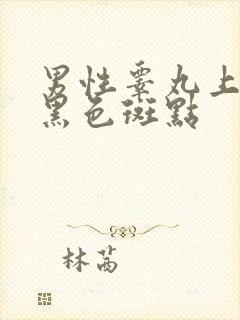 男性睾丸上
黑色斑點
林茜